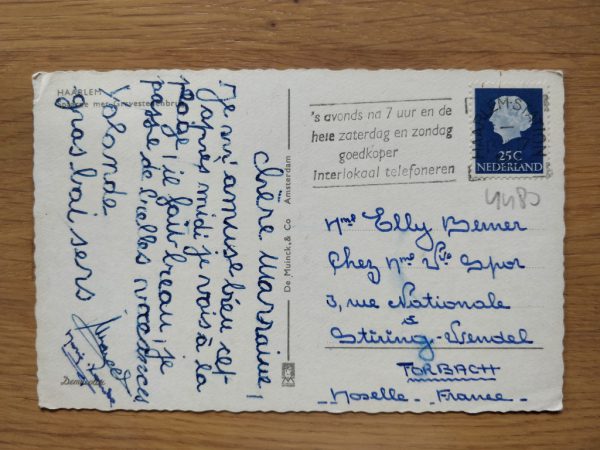 HAARLEM
Spaarne met Gravestenenbrug
chère marraine!
Je m'amuse bien cet
l'après midi je vais à la
plage, il fait beau, je
passe de belles vacances
gros baisers
Yolande
Demacolor
De Muinck & Co Amsterdam
's avonds na 7 uur en de
hele zaterdag en zondag
goedkoper
interlokaal telefoneren
25C
NEDERLAND
4480
Mme Elly Bemer
Chez Mme Vve Spor
3, rue Nationale
Stiring-Wendel
FORBACH
- Moselle - France -